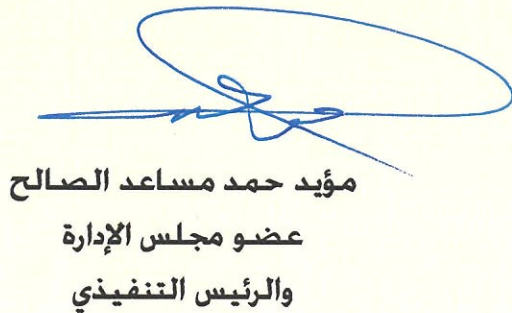 مؤيد حمد مساعد الصالح
عضو مجلس الإدارة
والرئيس التنفيذي